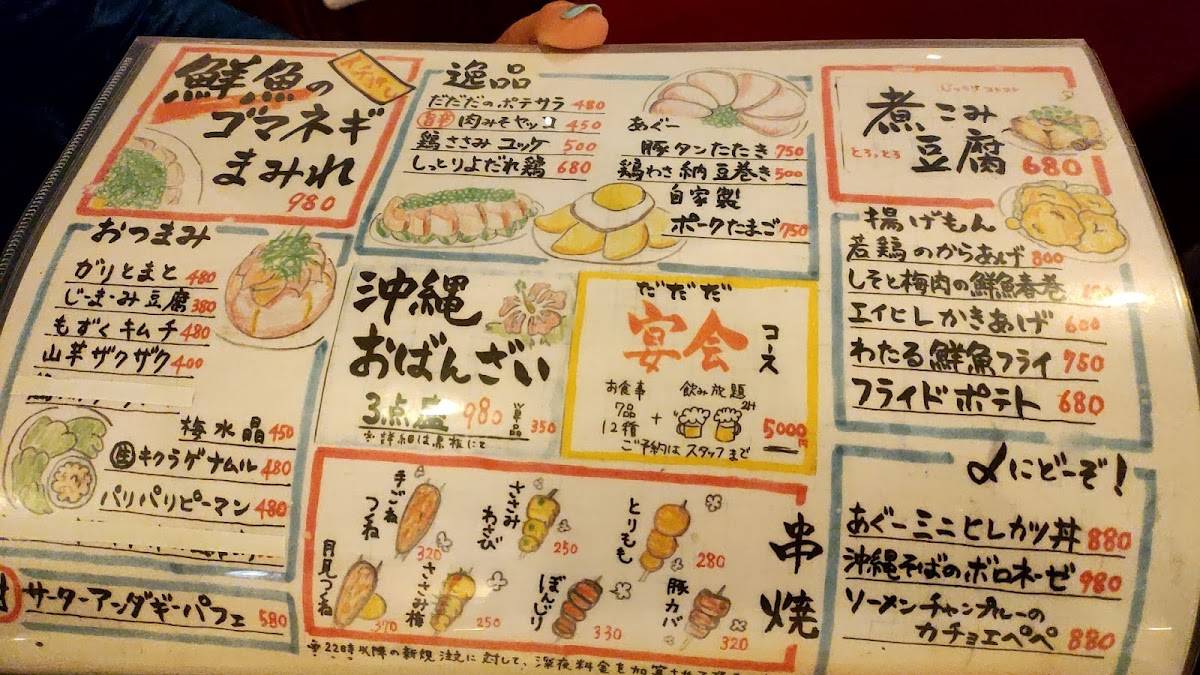 鮮魚の
ゴマネギ
まみれ
980
おつまみ
ガリとまと 480
じーまーみ豆腐 380
もずくキムチ 480
山芋ザクザク 400
梅水晶 450
生キクラゲナムル 480
パリパリピーマン 480
サーターアンダギーパフェ 580
逸品
だだだのポテサラ 480
肉みそヤッコ 450
鶏ささみユッケ 500
しっとりよだれ鶏 680
あぐー
豚タンたたき 750
鶏わさ納豆巻き 500
自家製
ポークたまご 750
沖縄
おばんざい
3点盛 980 単品 350
だだだ
宴会
コース
お食事
7品
12種
+
飲み放題
2H
5000円
ご予約はスタッフまで
串焼
手ごね
つくね
320
ささみ
わさび
250
とりもも
280
月見つくね
370
ささみ梅
250
ぼんじり
330
豚カバ
320
※22時以降の新規注文に対して、深夜料金を加算
煮こみ
豆腐
とろっとろ
680
揚げもん
若鶏のからあげ 800
しそと梅肉の鮮魚春巻
エイヒレかきあげ 600
わたる鮮魚フライ 750
フライドポテト 680
〆にどーぞ!
あぐーミニヒレカツ丼 880
沖縄そばのボロネーゼ 980
ソーメンチャンプルーの
カチョエペペ 880